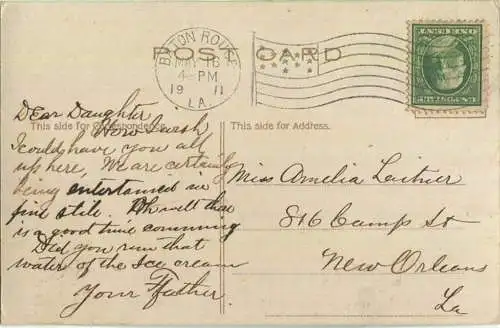 POST CARD
BATON ROUGE
MAY 16
4-PM
1911
LA.
This side for Correspondence.
This side for Address.
Dear Daughter
How I wish
I could have you all
up here, We are certainly
being entertained in
fine stile. Oh well there
is a good time comming
Did you run that
water of the Ice cream
Your Father.
Miss Amelia Leitner
816 Camp St
New Orleans
La